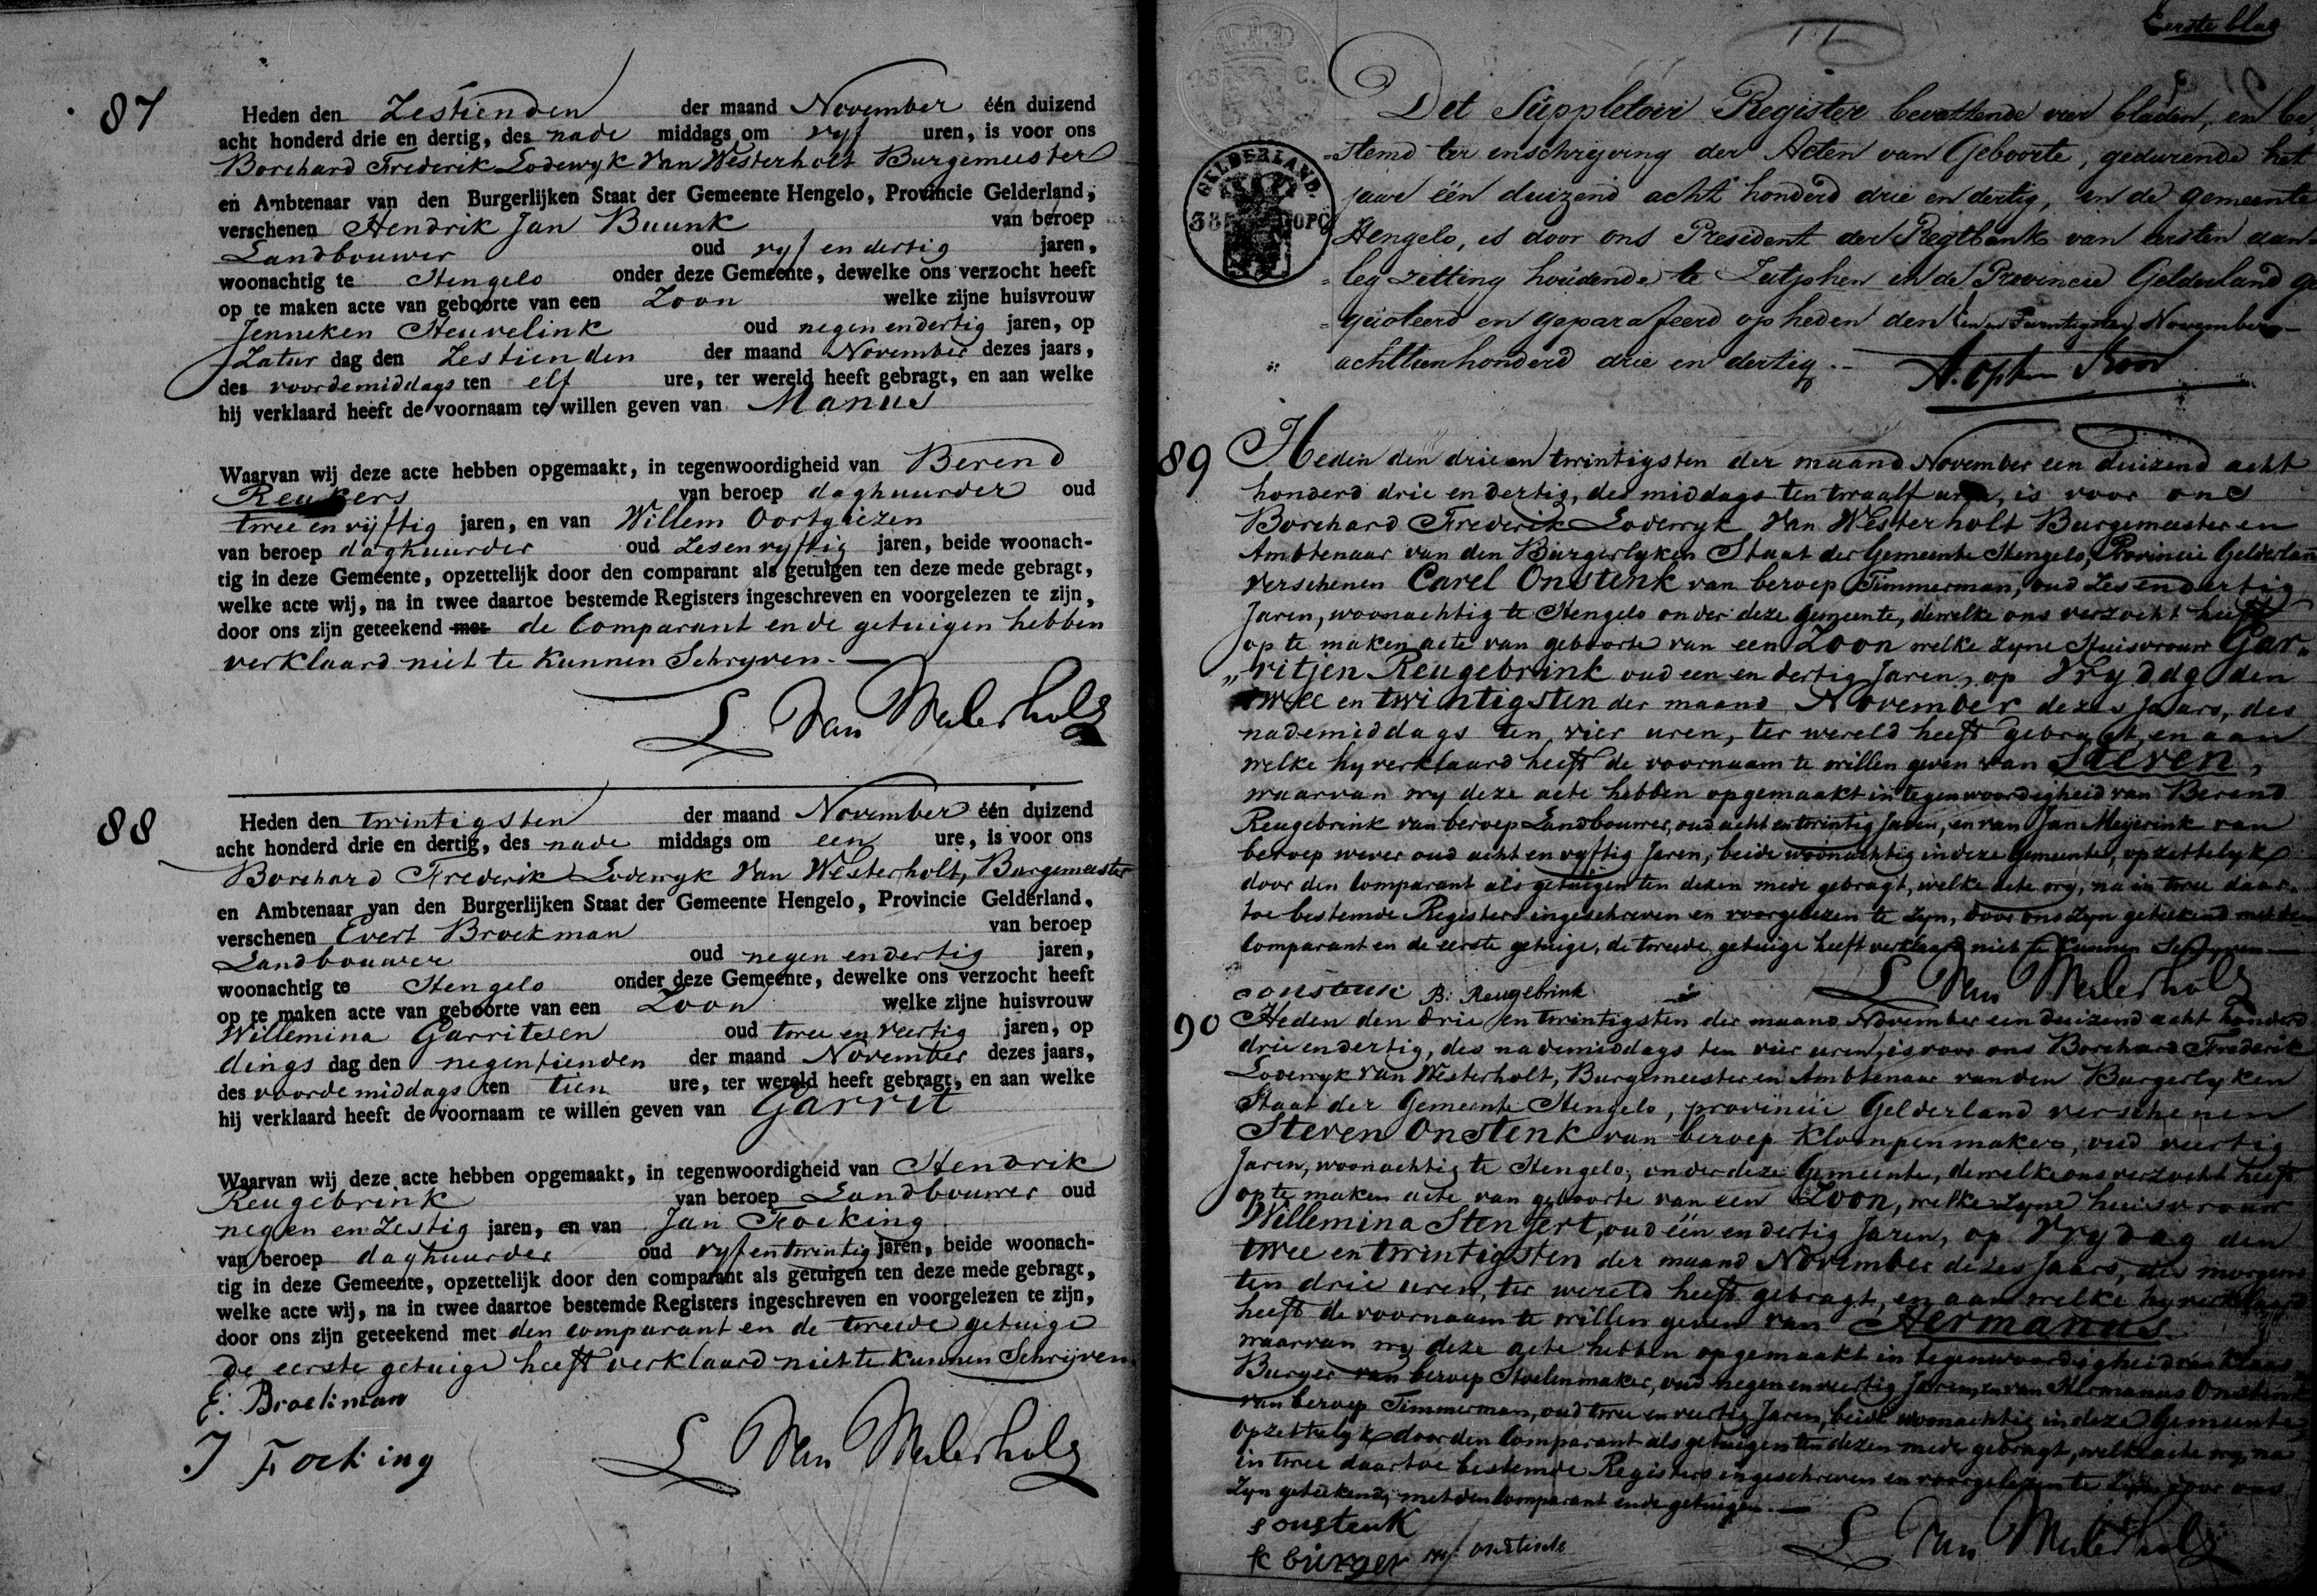 87
Heden den Zestienden der maand November één duizend
acht honderd drie en dertig, des nade middags om vyf uren, is voor ons
Borchard Frederik Lodewyk Van Westerholt Burgemeester
en Ambtenaar van den Burgerlijken Staat der Gemeente Hengelo, Provincie Gelderland,
verschenen Hendrik Jan Buunk van beroep
Landbouwer oud vyf en dertig jaren,
woonachtig te Hengelo onder deze Gemeente, dewelke ons verzocht heeft
op te maken acte van geboorte van een Zoon welke zijne huisvrouw
Jenneken Heuvelink oud negen en dertig jaren, op
Zatur dag den Zestienden der maand November dezes jaars,
des voordemiddags ten elf ure, ter wereld heeft gebragt, en aan welke
hij verklaard heeft de voornaam te willen geven van Manus
Waarvan wij deze acte hebben opgemaakt, in tegenwoordigheid van Berend
Reukers van beroep daghuurder oud
twee en vyftig jaren, en van Willem Oortgiezen
van beroep daghuurder oud Zes en vyftig jaren, beide woonach-
tig in deze Gemeente, opzettelijk door den comparant als getuigen ten deze mede gebragt,
welke acte wij, na in twee daartoe bestemde Registers ingeschreven en voorgelezen te zijn,
door ons zijn geteekend met de Comparant en de getuigen hebben
verklaard niet te kunnen Schryven.
L Van Westerholt
88
Heden den twintigsten der maand November één duizend
acht honderd drie en dertig, des nade middags om een ure, is voor ons
Borchard Frederik Lodewyk Van Westerholt, Burgemeester
en Ambtenaar van den Burgerlijken Staat der Gemeente Hengelo, Provincie Gelderland,
verschenen Evert Broekman van beroep
Landbouwer oud negen en dertig jaren,
woonachtig te Hengelo onder deze Gemeente, dewelke ons verzocht heeft
op te maken acte van geboorte van een Zoon welke zijne huisvrouw
Willemina Garritsen oud twee en veertig jaren, op
dings dag den negentienden der maand November dezes jaars,
des voordemiddags ten tien ure, ter wereld heeft gebragt, en aan welke
hij verklaard heeft de voornaam te willen geven van Garrit
Waarvan wij deze acte hebben opgemaakt, in tegenwoordigheid van Hendrik
Reugebrink van beroep Landbouwer oud
negen en Zestig jaren, en van Jan Focking
van beroep daghuurder oud vyf en twintig jaren, beide woonach-
tig in deze Gemeente, opzettelijk door den comparant als getuigen ten deze mede gebragt,
welke acte wij, na in twee daartoe bestemde Registers ingeschreven en voorgelezen te zijn,
door ons zijn geteekend met den comparant en de tweede getuige
de eerste getuige heeft verklaard niet te kunnen Schrijven
E: Broekman
J Focking
L Van Westerholt
Eerste blad
GELDERLAND
38 OPC
Det Suppletoir Register bevattende vier bladen, en be
stemd ter inschrijving der Acten van Geboorte, gedurende het
jaar één duizend acht honderd drie en dertig, in de gemeente
Hengelo, is door ons President der Regtbank van eersten aan-
leg zitting houdende te Zutphen in de Provincie Gelderland ge
quoteerd en geparafeerd op heden den Een en Twintigsten November
achttienhonderd drie en dertig.
89
Heden den drie en twintigsten der maand November een duizend acht
honderd drie en dertig, des middags ten twaalf uren, is voor ons
Borchard Frederik Lodewyk Van Westerholt Burgemeester en
Ambtenaar van den Burgerlyken Staat der Gemeente Hengelo, Provincie Gelderland
verschenen Carel Onstenk van beroep Timmerman, oud Zes en dertig
Jaren, woonachtig te Hengelo onder deze gemeente, dewelke ons verzocht heeft
op te maken acte van geboorte van een Zoon welke zyne Huisvrouw Gar„
„ritjen Reugebrink oud een en dertig Jaren, op Vrydag den
twee en twintigsten der maand November dezes Jaars, des
nademiddags ten vier uren, ter wereld heeft gebragt, en aan
welke hy verklaard heeft de voornaam te willen geven van Steven,
waarvan wy deze acte hebben opgemaakt in tegenwoordigheid van Berend
Reugebrink van beroep Landbouwer, oud acht en twintig Jaren, en van Jan Meyerink van
beroep wever oud acht en vyftig Jaren, beide woonachtig in deze Gemeente, opzettelyk
door den Comparant als getuigen ten dezen mede gebragt, welke acte wy, na in twee daar-
toe bestemde Registers ingeschreven en voorgelezen te zyn, door ons zyn geteekend met den
Comparant en de eerste getuige, de tweede getuige heeft verklaard niet te kunnen Schryven
C onstenk B: Reugebrink L Van Westerholt
90
Heden den drie en twintigsten der maand November een duizend acht honderd
drie en dertig, des nademiddags ten vier uren, is voor ons Borchard Frederik
Lodewyk Van Westerholt, Burgemeester en Ambtenaar van den Burgerlyken
Staat der Gemeente Hengelo, provincie Gelderland verschenen
Steven Onstenk van beroep Klompenmaker, oud veertig
Jaren, woonachtig te Hengelo, onder deze Gemeente, dewelke ons verzocht heeft
op te maken acte van geboorte van een Zoon, welke zyne huisvrouw
Willemina Stenfert, oud één en dertig Jaren, op Vrydag den
twee en twintigsten der maand November dezes Jaars, des morgens
ten drie uren, ter wereld heeft gebragt, en aan welke hy verklaard
heeft de voornaam te willen geven van Hermanus
waarvan wy deze acte hebben opgemaakt in tegenwoordigheid van Klaas
Burger van beroep Stoelenmaker, oud negen en veertig Jaren, en van Hermanus Onstenk
van beroep Timmerman, oud twee en veertig Jaren, beide woonachtig in deze Gemeente,
opzettelyk door den Comparant als getuigen ten dezen mede gebragt, welke acte wy, na
in twee daartoe bestemde Registers ingeschreven en voorgelezen te zyn, door ons
zyn geteekend, met den Comparant en de getuigen.
s onstenk
k burger onstenk
L Van Westerholt